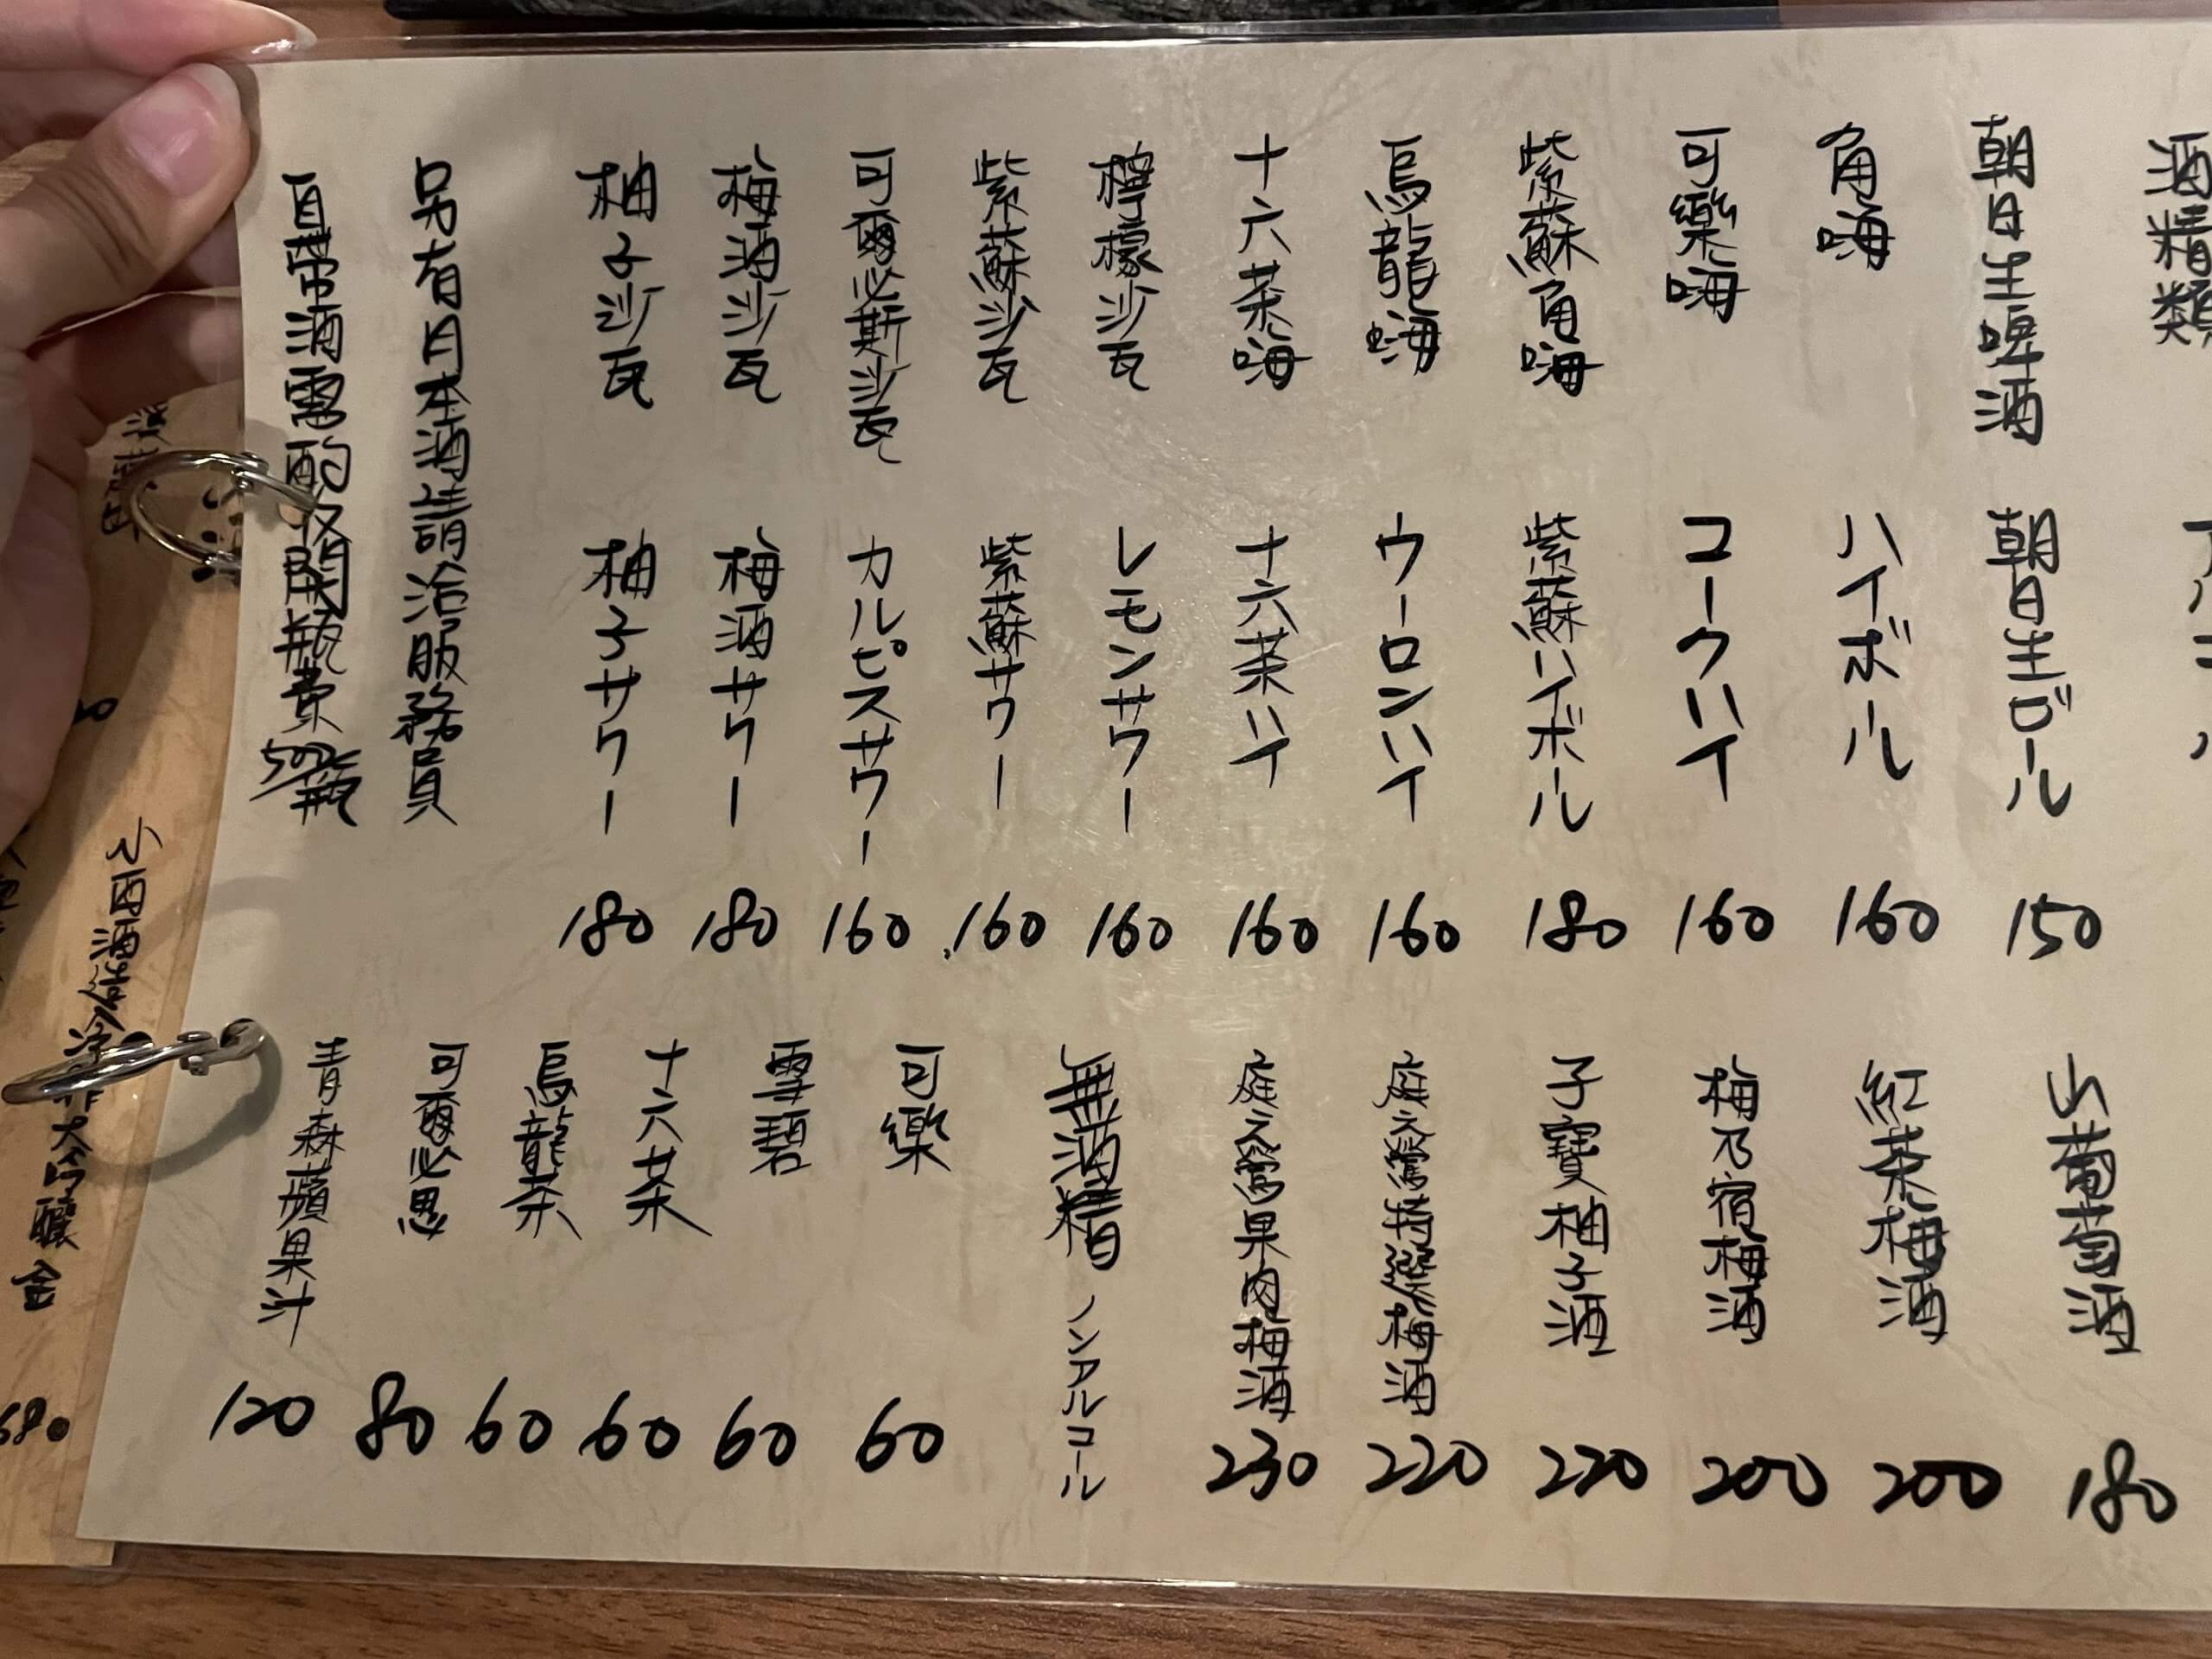 酒精類
朝日生啤酒 朝日生ビール 150
角嗨 ハイボール 160
可樂嗨 コークハイ 160
紫蘇角嗨 紫蘇ハイボール 180
烏龍嗨 ウーロンハイ 160
十六茶嗨 十六茶ハイ 160
檸檬沙瓦 レモンサワー 160
紫蘇沙瓦 紫蘇サワー 160
可爾必斯沙瓦 カルピスサワー 160
梅酒沙瓦 梅酒サワー 180
柚子沙瓦 柚子サワー 180
另有日本酒請洽服務員
自帶酒需酌收開瓶費500元/瓶
山葡萄酒 180
紅茶梅酒 200
梅乃宿梅酒 200
子寶柚子酒 220
庭之鶯特撰梅酒 220
庭之鶯果肉梅酒 230
無酒精 ノンアルコール
可樂 60
雪碧 60
十六茶 60
烏龍茶 60
可爾必思 80
青森蘋果汁 120
大吟釀
680